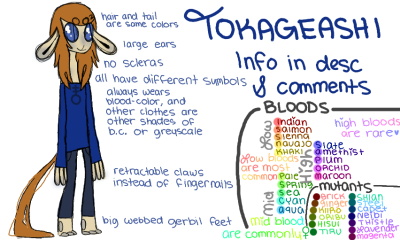 TOKAGEASHI
Info in desc
& comments
hair and tail
are same colors
large ears
no scleras
all have different symbols
always wears
blood-color, and
other clothes are
other shades of
b.c. or greyscale
retractable claws
instead of fingernails
big webbed gerbil feet
BLOODS
low
indian
salmon
sienna
navajo
khaki
low bloods
are most
common
high bloods
are rare
high
slate
amethist
plum
orchid
maroon
mid
pale
spring
sea
cyan
aqua
mid bloods
are commonly
mutants
brick
ginger
hisui
tiru
shian
neibi
thistle
lavender
magenta